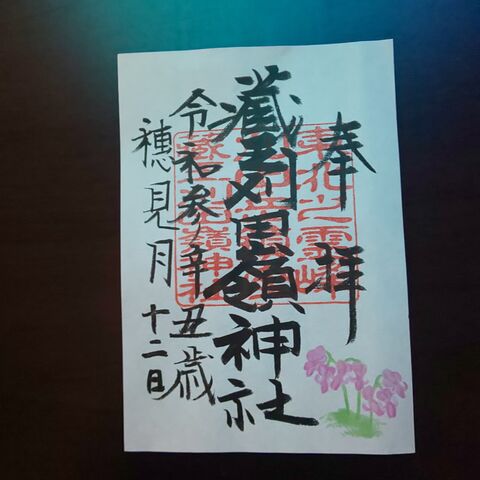 奉拝
蔵王刈田嶺神社
令和参年辛丑歳
穂見月十二日
東北之霊峰
蔵王刈田嶺神社